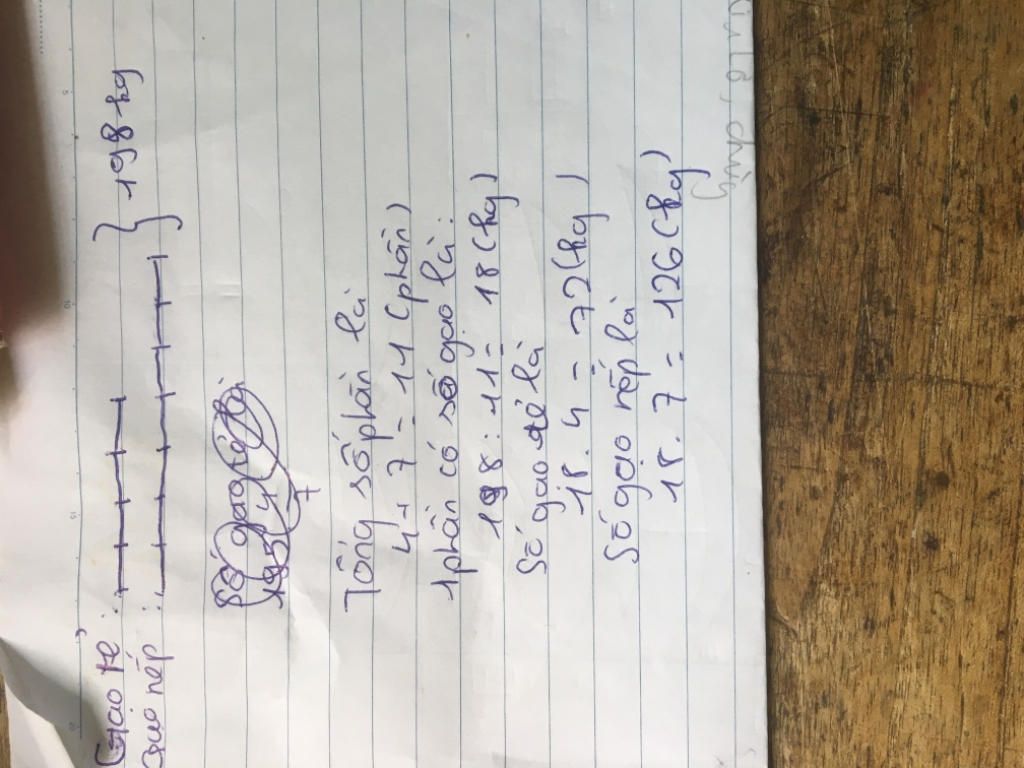 Gạo tẻ :
Gạo nếp :
} 198 kg
Tổng số phần là
4 + 7 = 11 (phần)
1 phần có số gạo là :
198 : 11 = 18 (kg)
Số gạo tẻ là
18 . 4 = 72 (kg)
Số gạo nếp là
18 . 7 = 126 (kg)